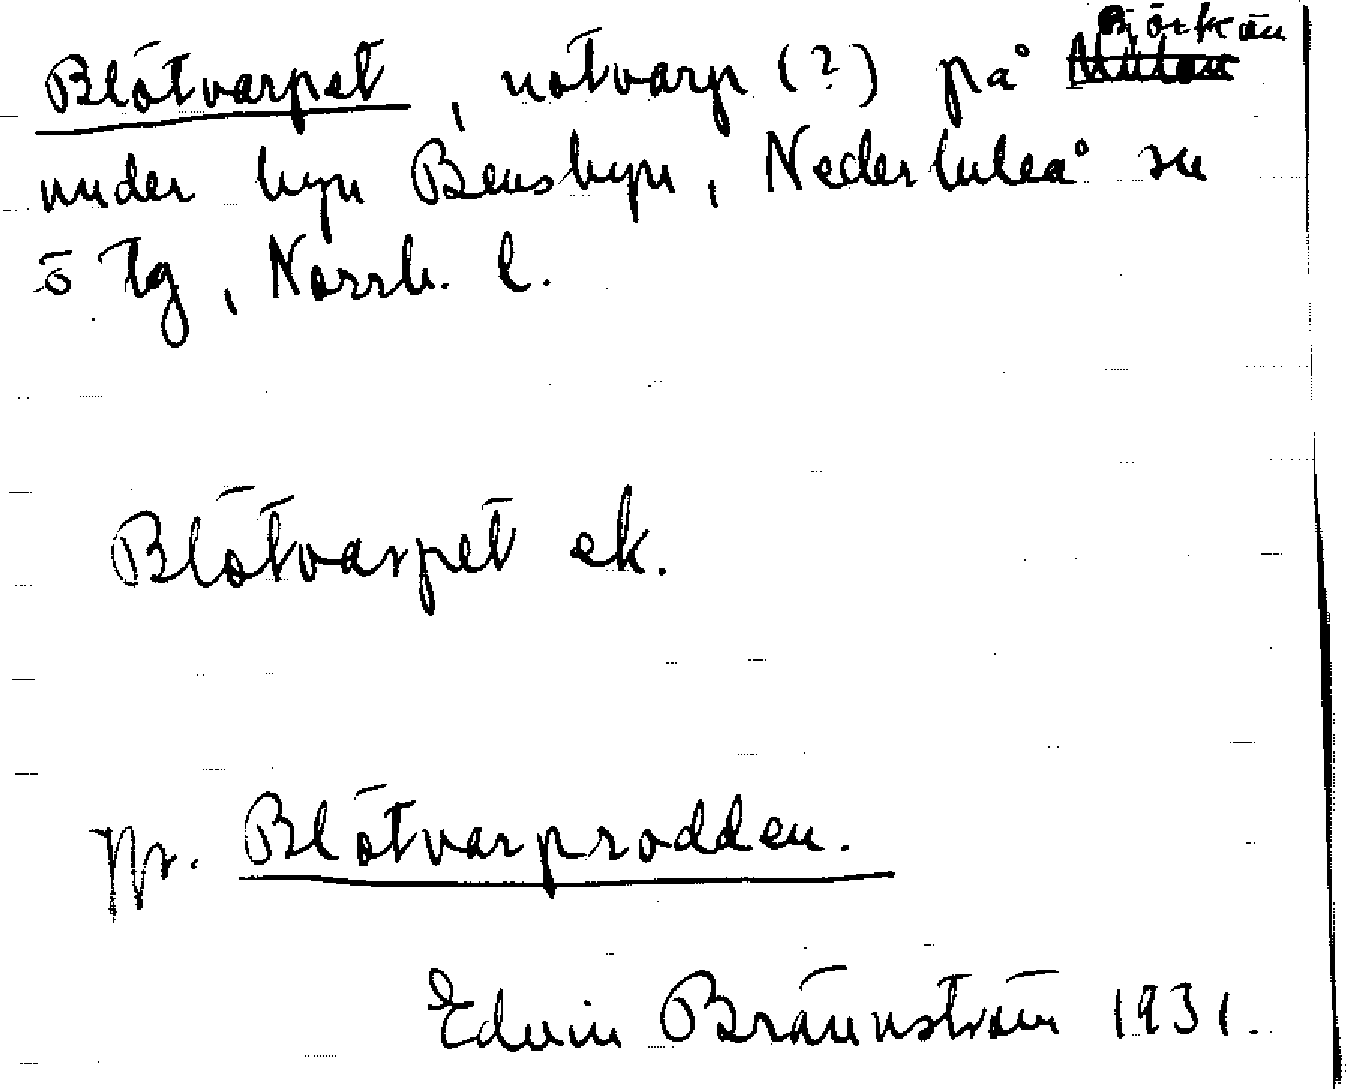 Björkön
Blötvarpet, notvarp (?) på
under byn Bensbyn, Nederluleå sn
ö Tg, Norrb. l.
Blötvarpet ek.
Jfr. Blötvarpsrodden.
Edvin Brännström 1931.